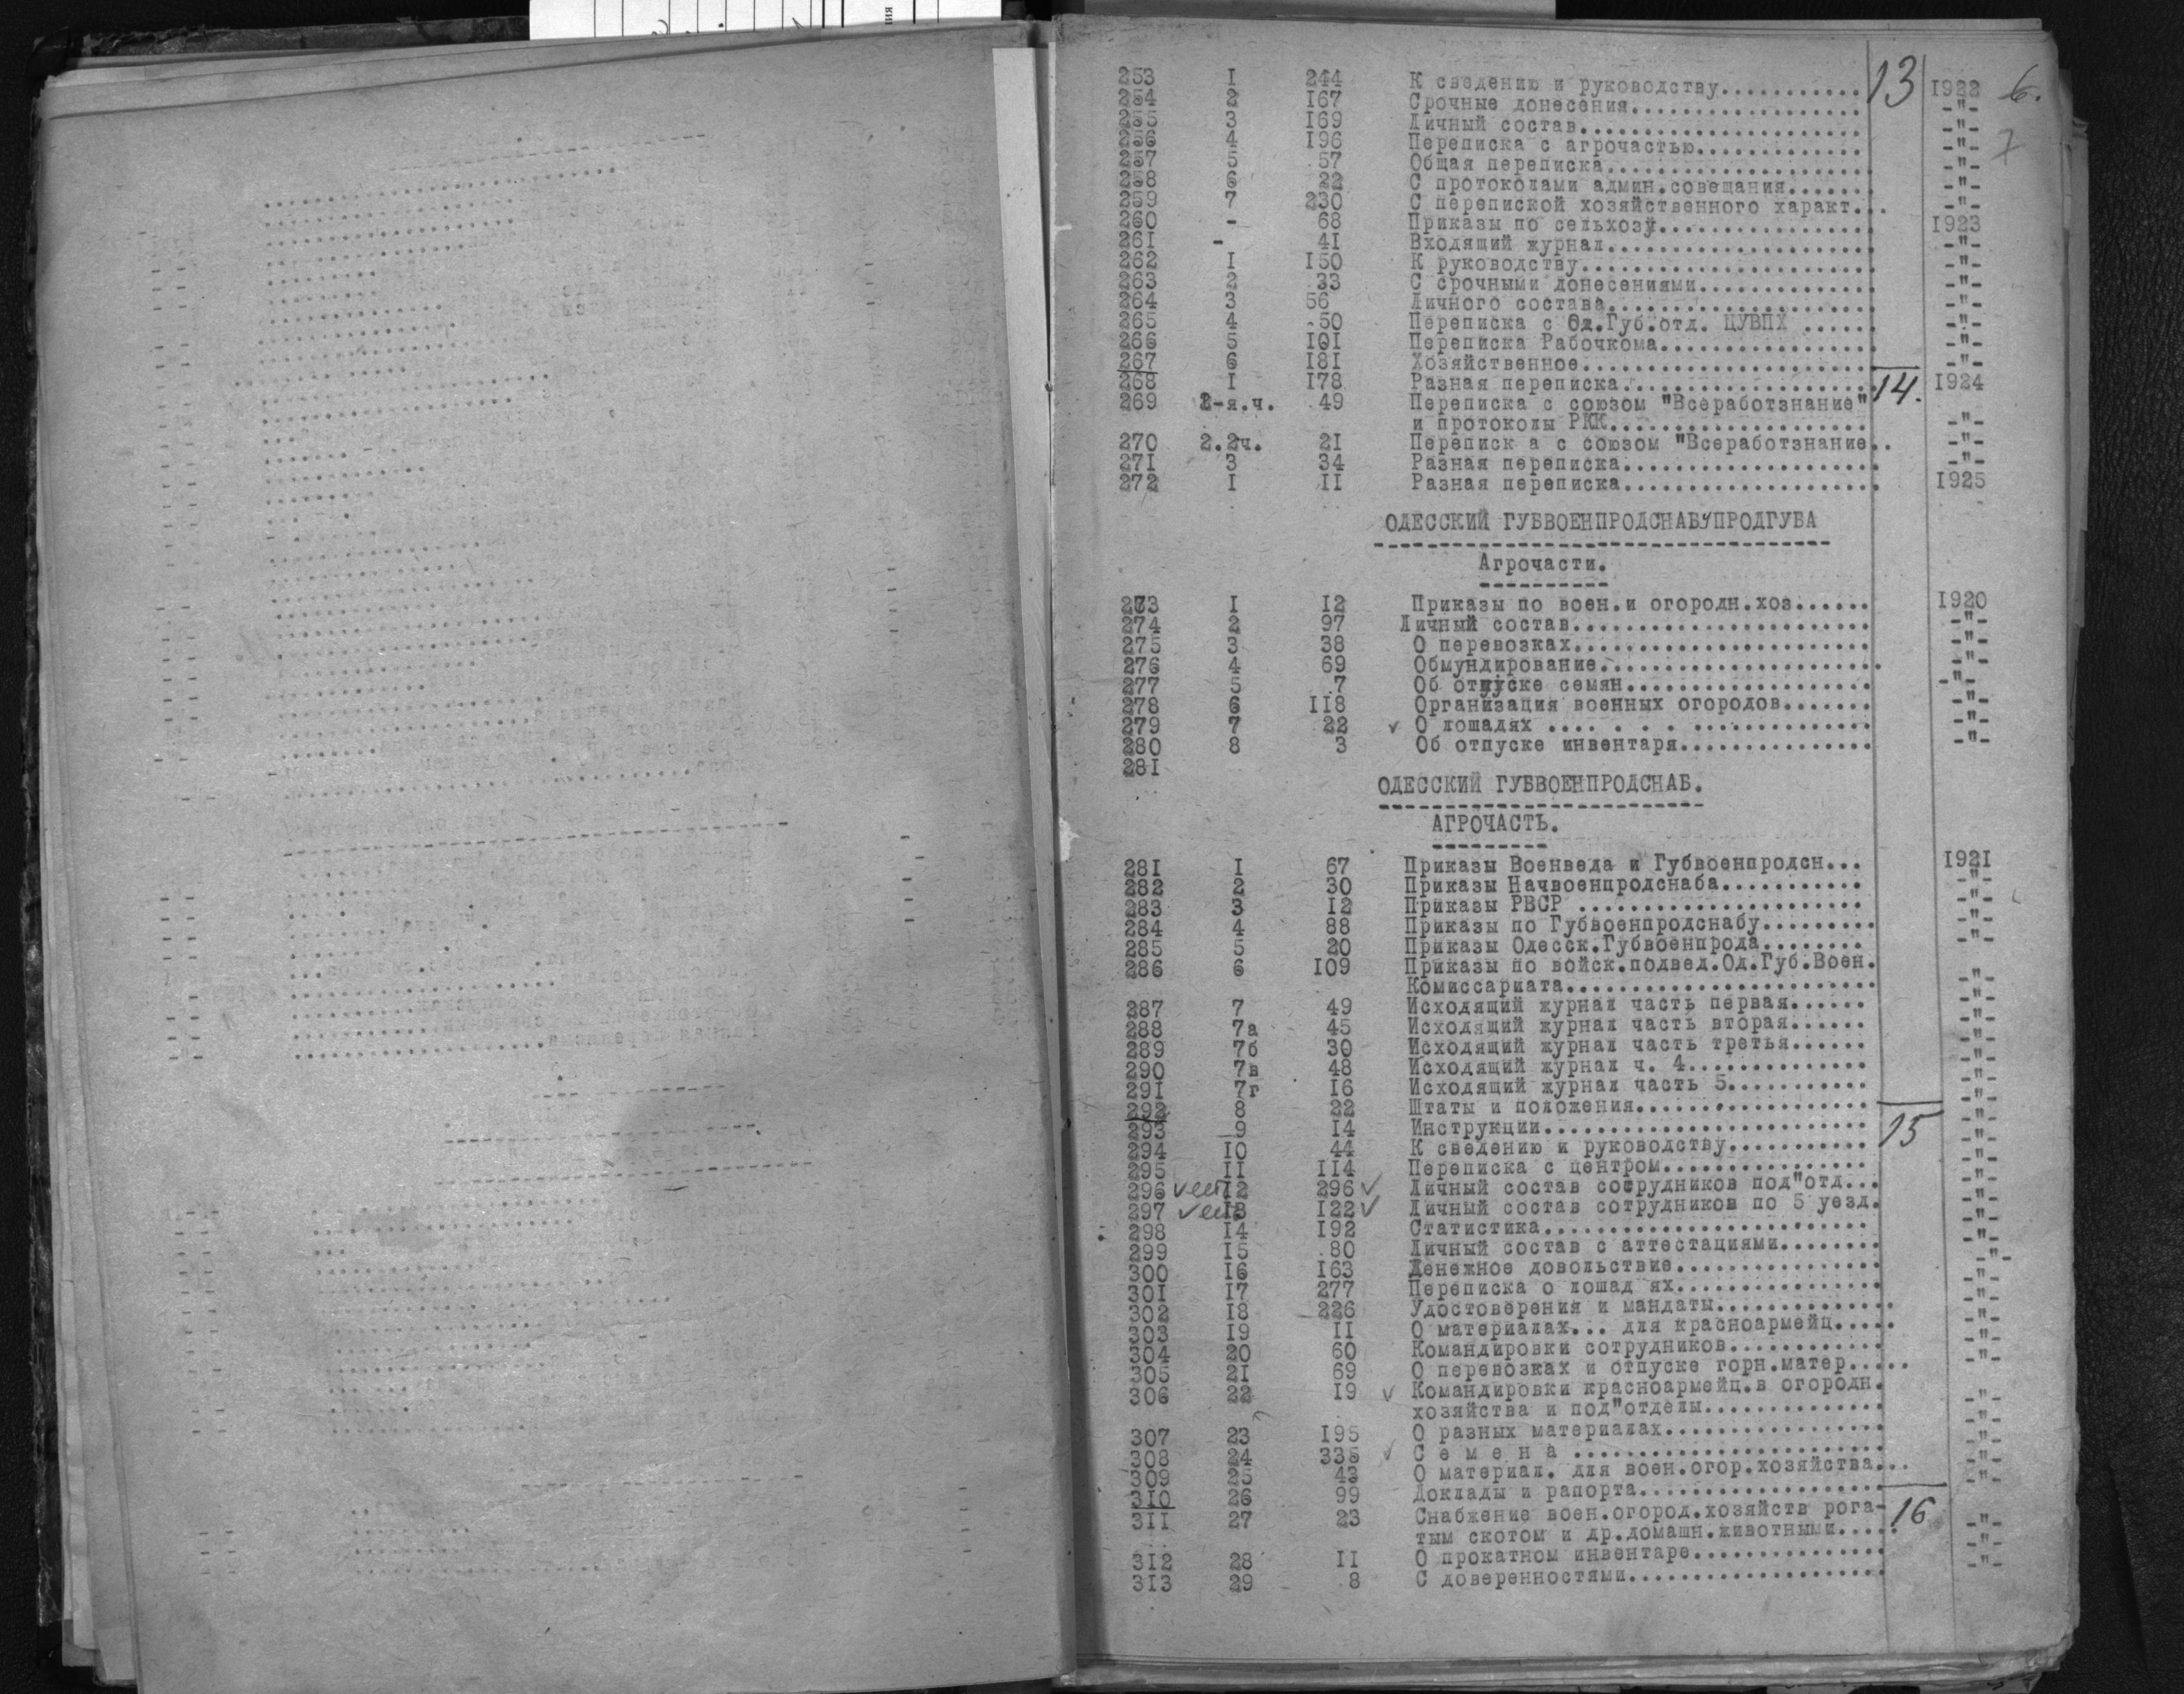 253 I 244 К сведению и руководству........... 13 1922 6.
254 2 167 Срочные донесения.................. -"-
255 3 169 Личный состав...................... -"-
256 4 196 Переписка с агрочастью............. -"- 7
257 5 57 Общая переписка..................... -"-
258 6 22 С протоколами админ.совещания....... -"-
259 7 230 С перепиской хозяйственного характ... -"-
260 - 68 Приказы по сельхозу................. 1923
261 - 41 Входящий журнал..................... -"-
262 I 150 К руководству....................... -"-
263 2 33 С срочными донесениями.............. -"-
264 3 56 Личного состава..................... -"-
265 4 50 Переписка с Од.Губ.отд. ЦУВПХ ...... -"-
266 5 101 Переписка Рабочкома................. -"-
267 6 181 Хозяйственное....................... -"-
268 I 178 Разная переписка.................... 14. 1924
269 2-я.ч. 49 Переписка с союзом "Всеработзнание"
и протоколы РКК.................... -"-
270 2.2ч. 21 Переписк а с союзом "Всеработзнание.. -"-
271 3 34 Разная переписка.................... -"-
272 I II Разная переписка.................... 1925
ОДЕССКИЙ ГУБВОЕНПРОДСНАБУПРОДГУБА
Агрочасти.
273 I 12 Приказы по воен.и огородн.хоз...... 1920
274 2 97 Личный состав....................... -"-
275 3 38 О перевозках....................... -"-
276 4 69 Обмундирование...................... -"-
277 5 7 Об отпуске семян................... -"-
278 6 118 Организация военных огородов....... -"-
279 7 22 ✓ О лошадях .... . . . .............. -"-
280 8 3 Об отпуске инвентаря............... -"-
281
ОДЕССКИЙ ГУБВОЕНПРОДСНАБ.
АГРОЧАСТЬ.
281 I 67 Приказы Военведа и Губвоенпродсн... 1921
282 2 30 Приказы Начвоенпродснаба........... -"-
283 3 12 Приказы РВСР ...................... -"-
284 4 88 Приказы по Губвоенпродснабу......... -"-
285 5 20 Приказы Одесск.Губвоенпрода........ -"-
286 6 109 Приказы по войск.подвед.Од.Губ.Воен.
Комиссариата........................ -"-
287 7 49 Исходящий журнал часть первая...... -"-
288 7а 45 Исходящий журнал часть вторая...... -"-
289 7б 30 Исходящий журнал часть третья...... -"-
290 7в 48 Исходящий журнал ч. 4.............. -"-
291 7г 16 Исходящий журнал часть 5........... -"-
292 8 22 Штаты и положения.................. -"-
293 9 14 Инструкции......................... 15 -"-
294 10 44 К сведению и руководству........... -"-
295 II 114 Переписка с центром................ -"-
296 ✓ 12 296 ✓ Личный состав сотрудников под"отд... -"-
297 ✓ 13 122 ✓ Личный состав сотрудников по 5 уезд. -"-
298 14 192 Статистика......................... -"-
299 15 80 Личный состав с аттестациями........ -"-
300 16 163 Денежное довольствие................ -"-
301 17 277 Переписка о лошад ях................ -"-
302 18 226 Удостоверения и мандаты.............. -"-
303 19 II О материалах... для красноармейц..... -"-
304 20 60 Командировки сотрудников............ -"-
305 21 69 О перевозках и отпуске горн.матер..... -"-
306 22 19 ✓ Командировки красноармейц.в огородн.
хозяйства и под"отделы.............. -"-
307 23 195 О разных материалах................. -"-
308 24 335 ✓ С е м е н а ........................ -"-
309 25 43 О материал. для воен.огор.хозяйства... -"-
310 26 99 Доклады и рапорта................... -"-
311 27 23 Снабжение воен.огород.хозяйств рога- 16
тым скотом и др.домашн.животными..... -"-
312 28 II О прокатном инвентаре............... -"-
313 29 8 С доверенностями.................... -"-